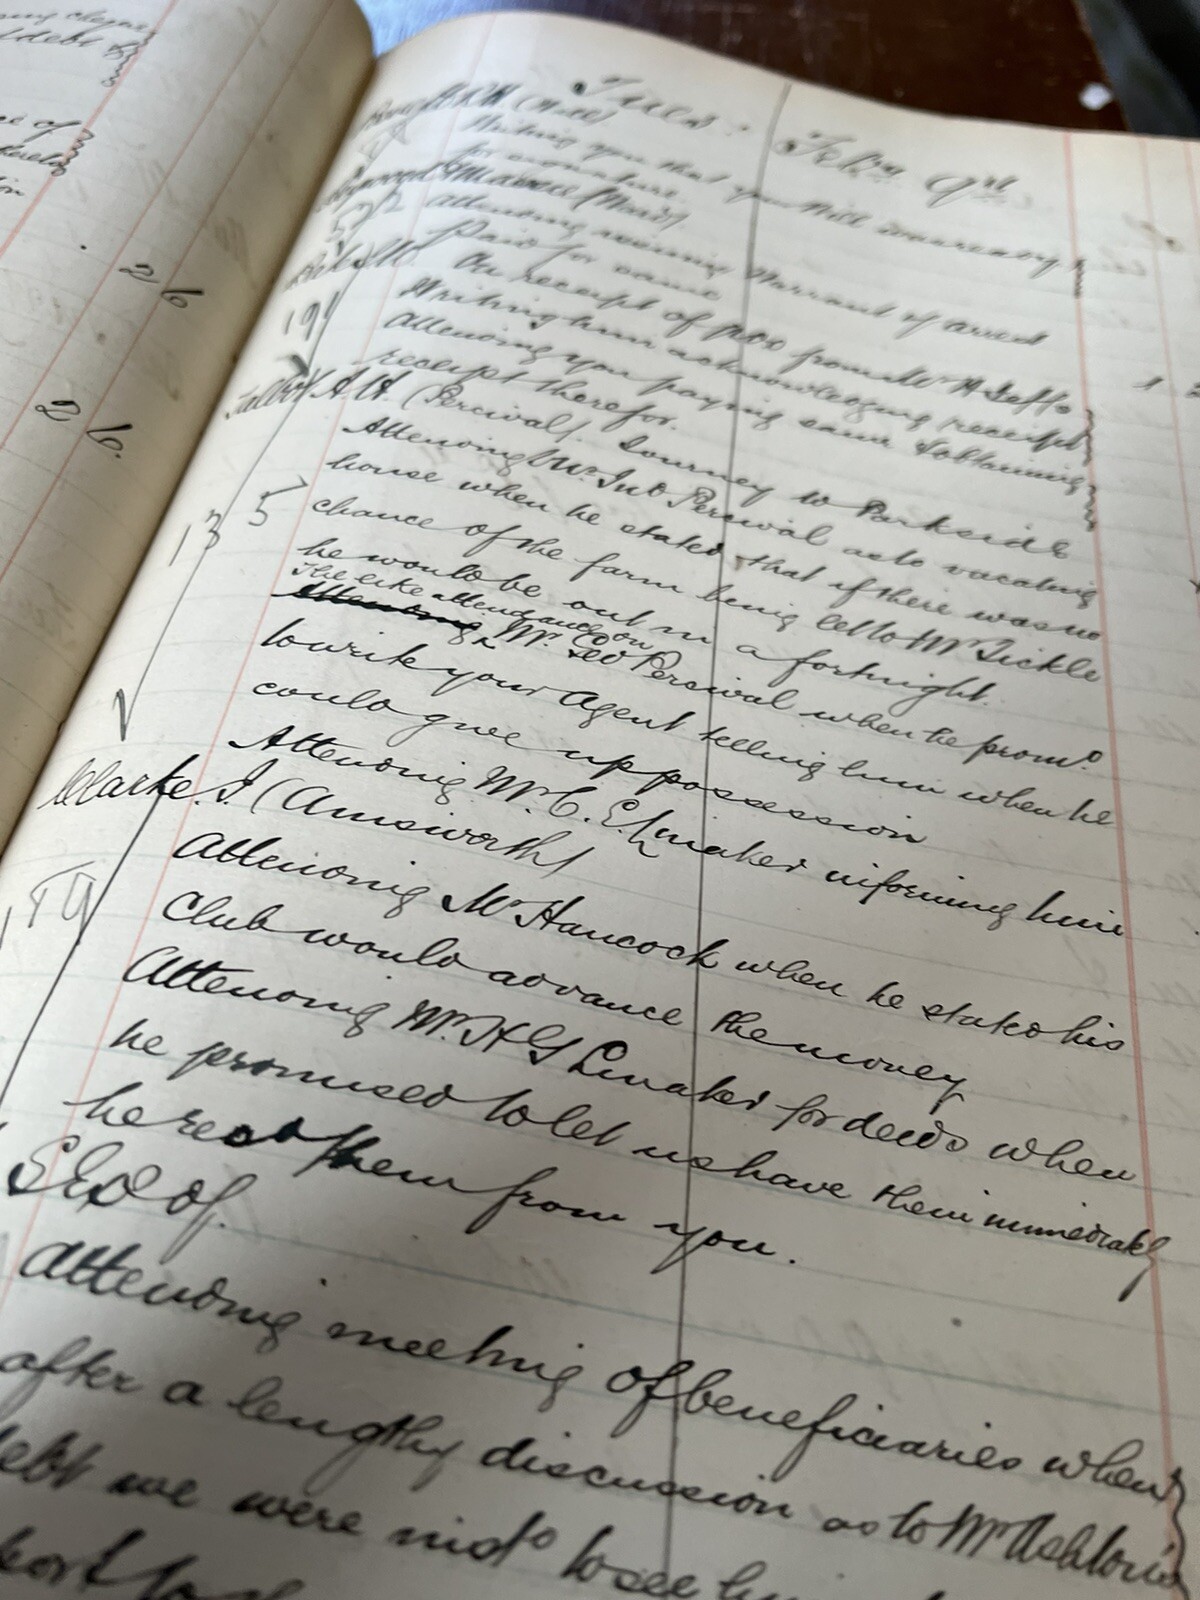 26
26.
Tues: Feby 9th
Writing you that your Will was ready
for signature.
Attending issuing Warrant of arrest
Paid for same
191 On receipt of from Mr H Jeffs
Writing him acknowledging receipt
Attending you paying same & obtaining
receipt therefor.
Talbot A. H. (Percival). Journey to Parkside
Attending Mr. Jno Percival as to vacating
house when he stated that if there was no
135 chance of the farm being let to Mr Tickle
he would be out in a fortnight.
The like attendance on
Mr. Geo Percival when he promd
to write your Agent telling him when he
could give up possession
Attending Mr. C. E. Linaker informing him
Clarke. J. (Ainsworth)
Attending Mr Hancock when he stated his
Club would advance the money
Attending Mr. H G Linaker for deeds when
he promised to let us have them immediately
he recd them from you.
Exd of.
Attending meeting of beneficiaries when
after a lengthy discussion as to Mr Ashton's
debt we were instd to see